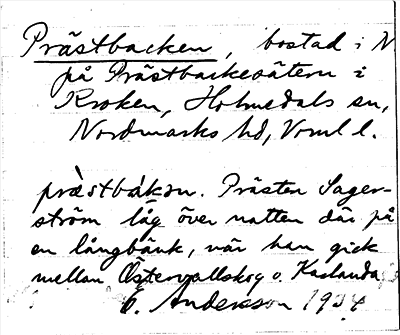 Prästbacken, bostad i N.
på Prästbackesätern i
Kroken, Holmedals sn,
Nordmarks hd, Vrml l.
præstbákən. Prästen Lager-
ström låg över natten där på
en långbänk, när han gick
mellan Östervallskog o. Karlanda
E. Andersson 1934